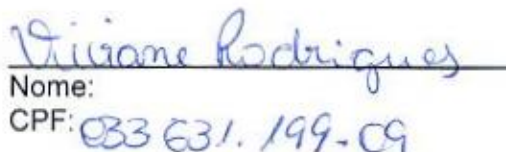 Viviane Rodrigues
Nome:
CPF: 033 631.199-09